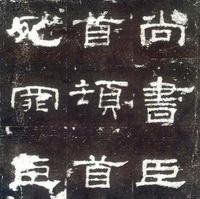 尚書臣
首頓首
死罪臣